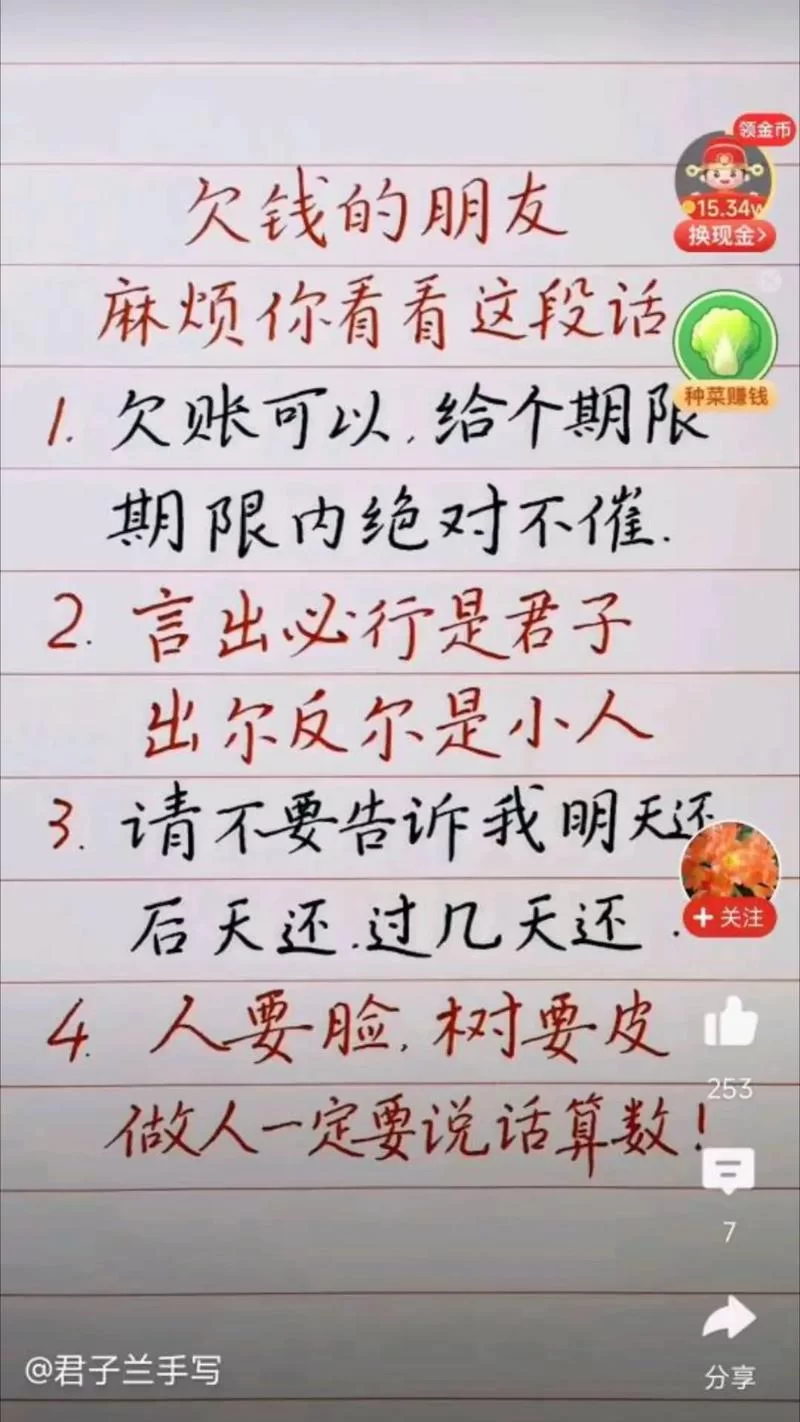 欠钱的朋友
麻烦你看看这段话
1. 欠账可以,给个期限
期限内绝对不催.
2. 言出必行是君子
出尔反尔是小人
3. 请不要告诉我明天还
后天还.过几天还.
4. 人要脸,树要皮
做人一定要说话算数!
领金币
15.34w
换现金>
种菜赚钱
+ 关注
253
7
分享
@君子兰手写